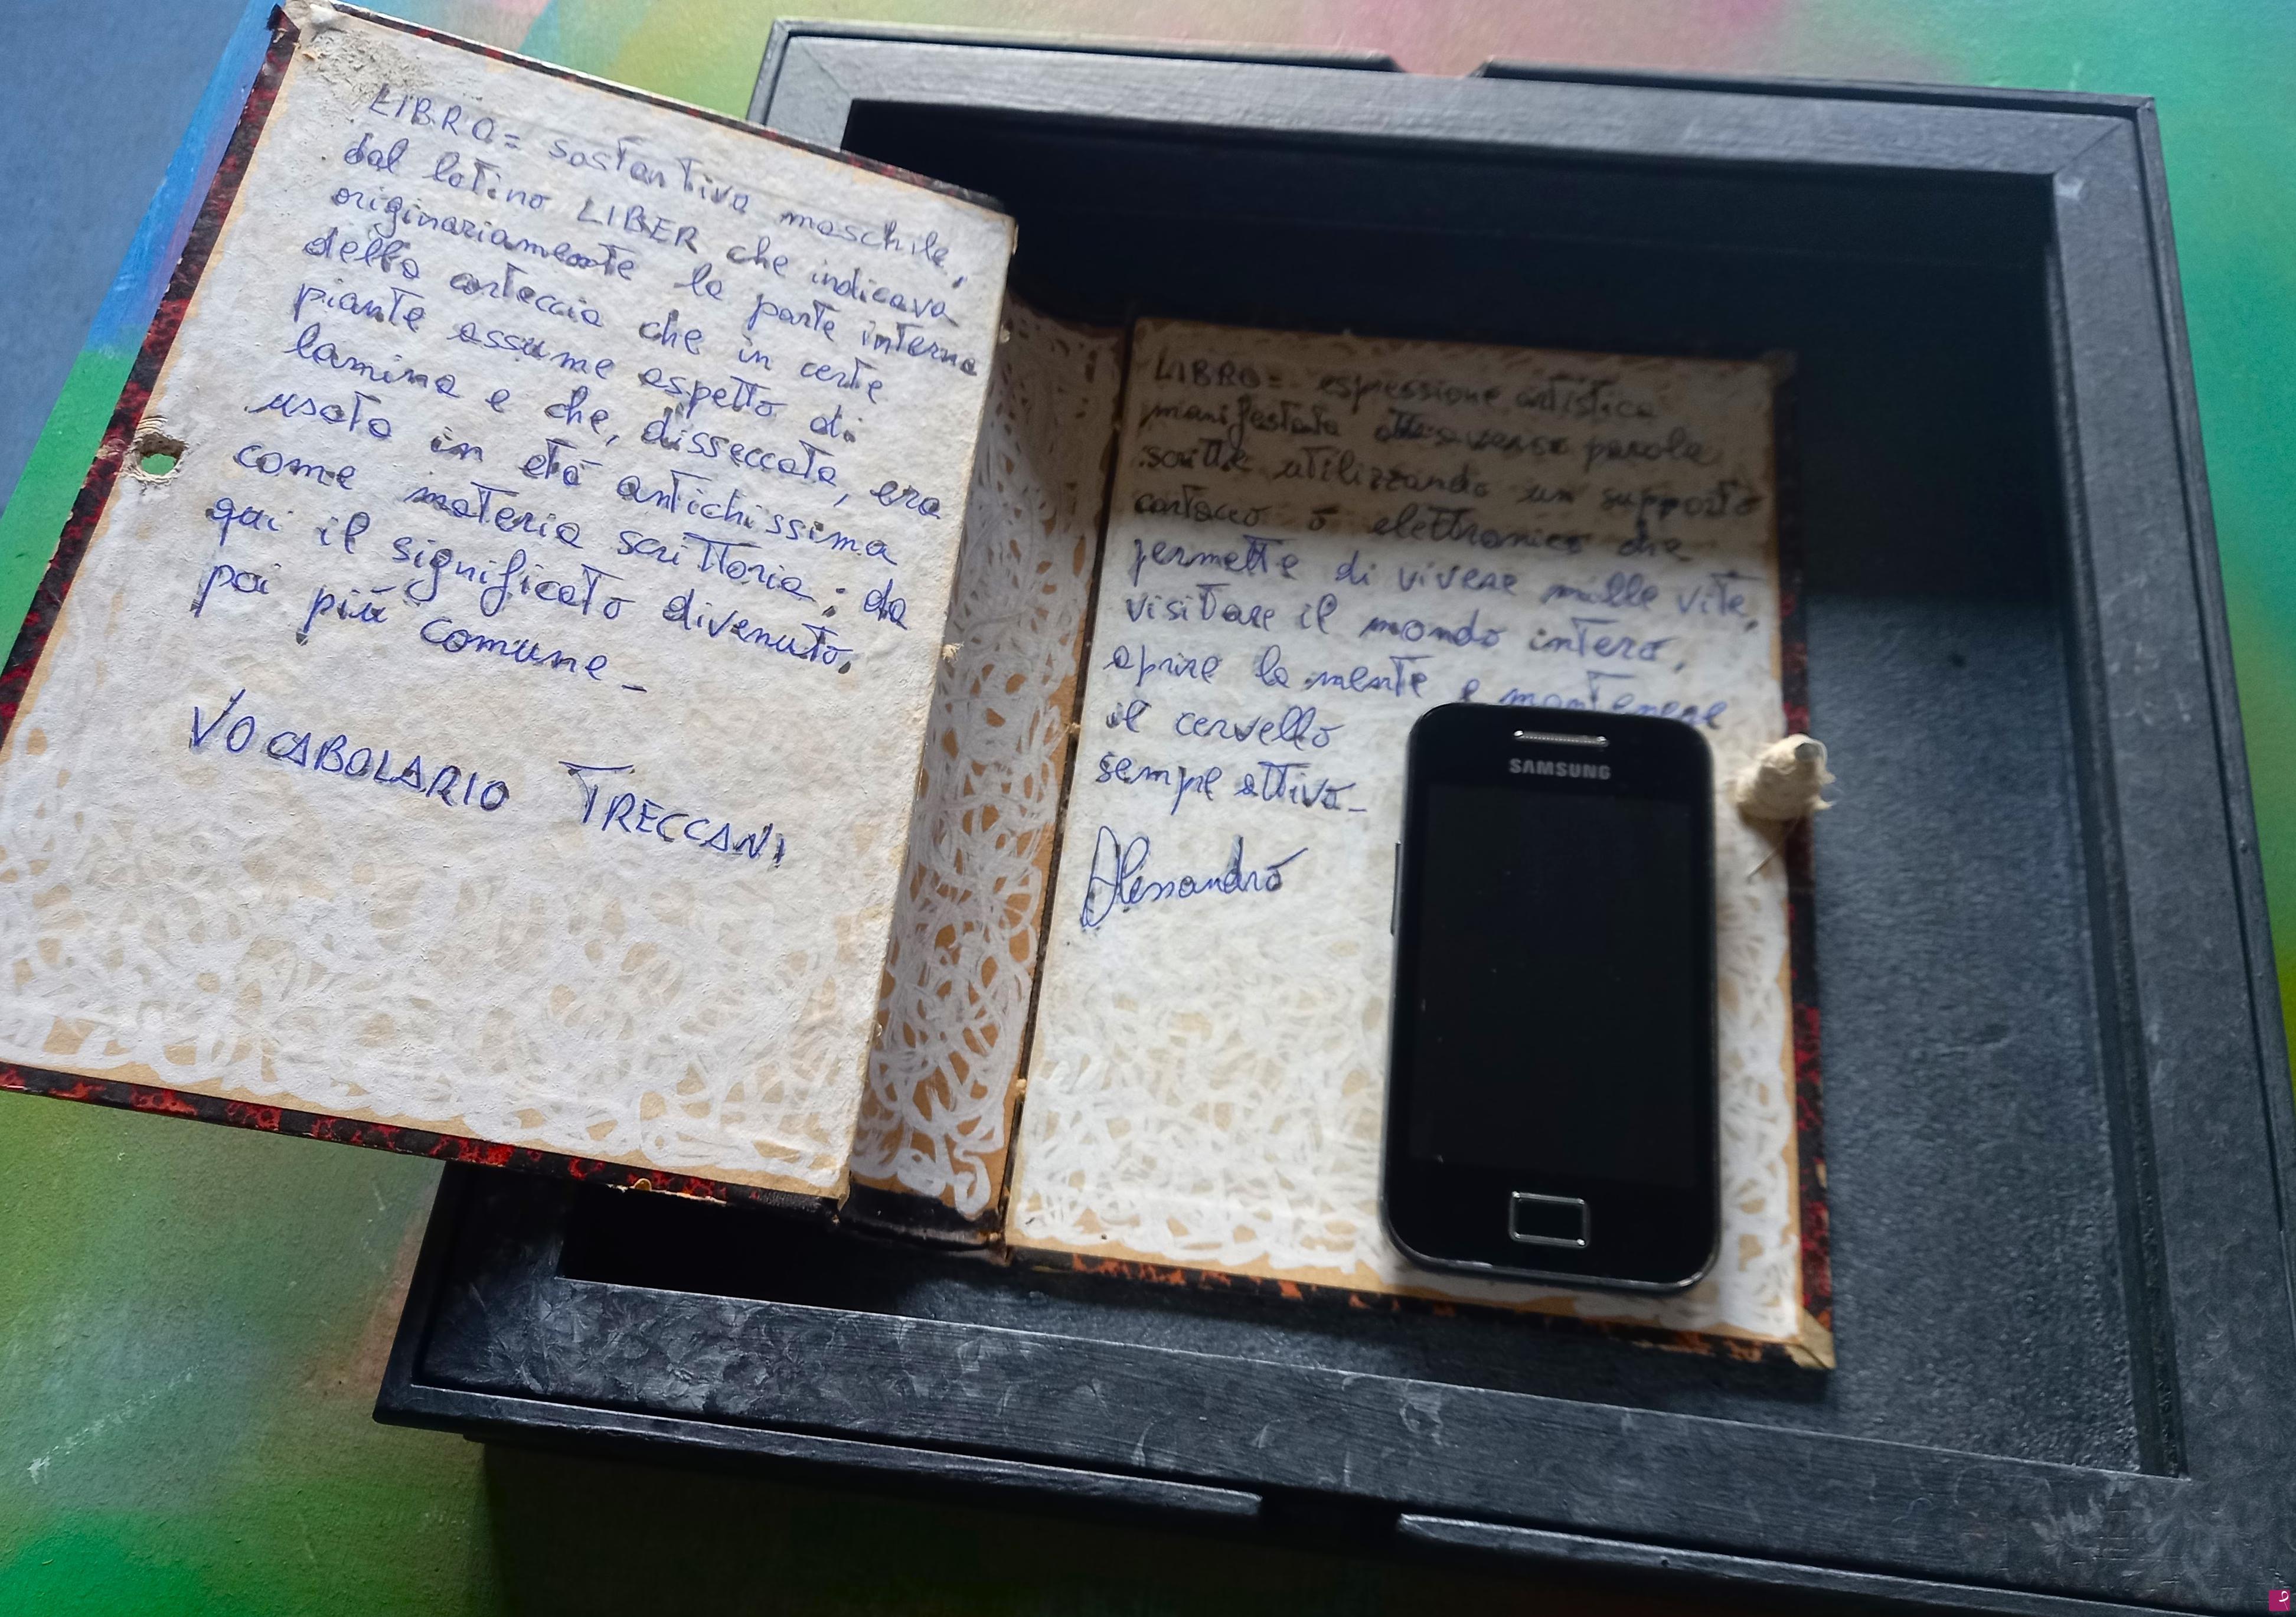 LIBRO= sostantivo maschile,
dal latino LIBER che indicava
originariamente la parte interna
della corteccia che in certe
piante assume aspetto di
lamina e che, disseccata, era
usata in età antichissima
come materia scrittoria; da
qui il significato divenuto,
poi più comune_
VOCABOLARIO TRECCANI
LIBRO= espressione artistica
manifestata attraverso parole
scritte utilizzando un supporto
cartaceo o elettronico che
permette di vivere mille vite,
visitare il mondo intero,
aprire la mente e mantenere
il cervello
sempre attivo_
Alessandro
SAMSUNG